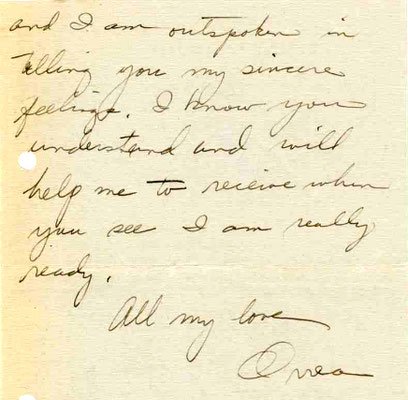 and I am outspoken in
telling you my sincere
feelings. I know you
understand and will
help me to receive when
you see I am really
ready.
All my love
Orrea